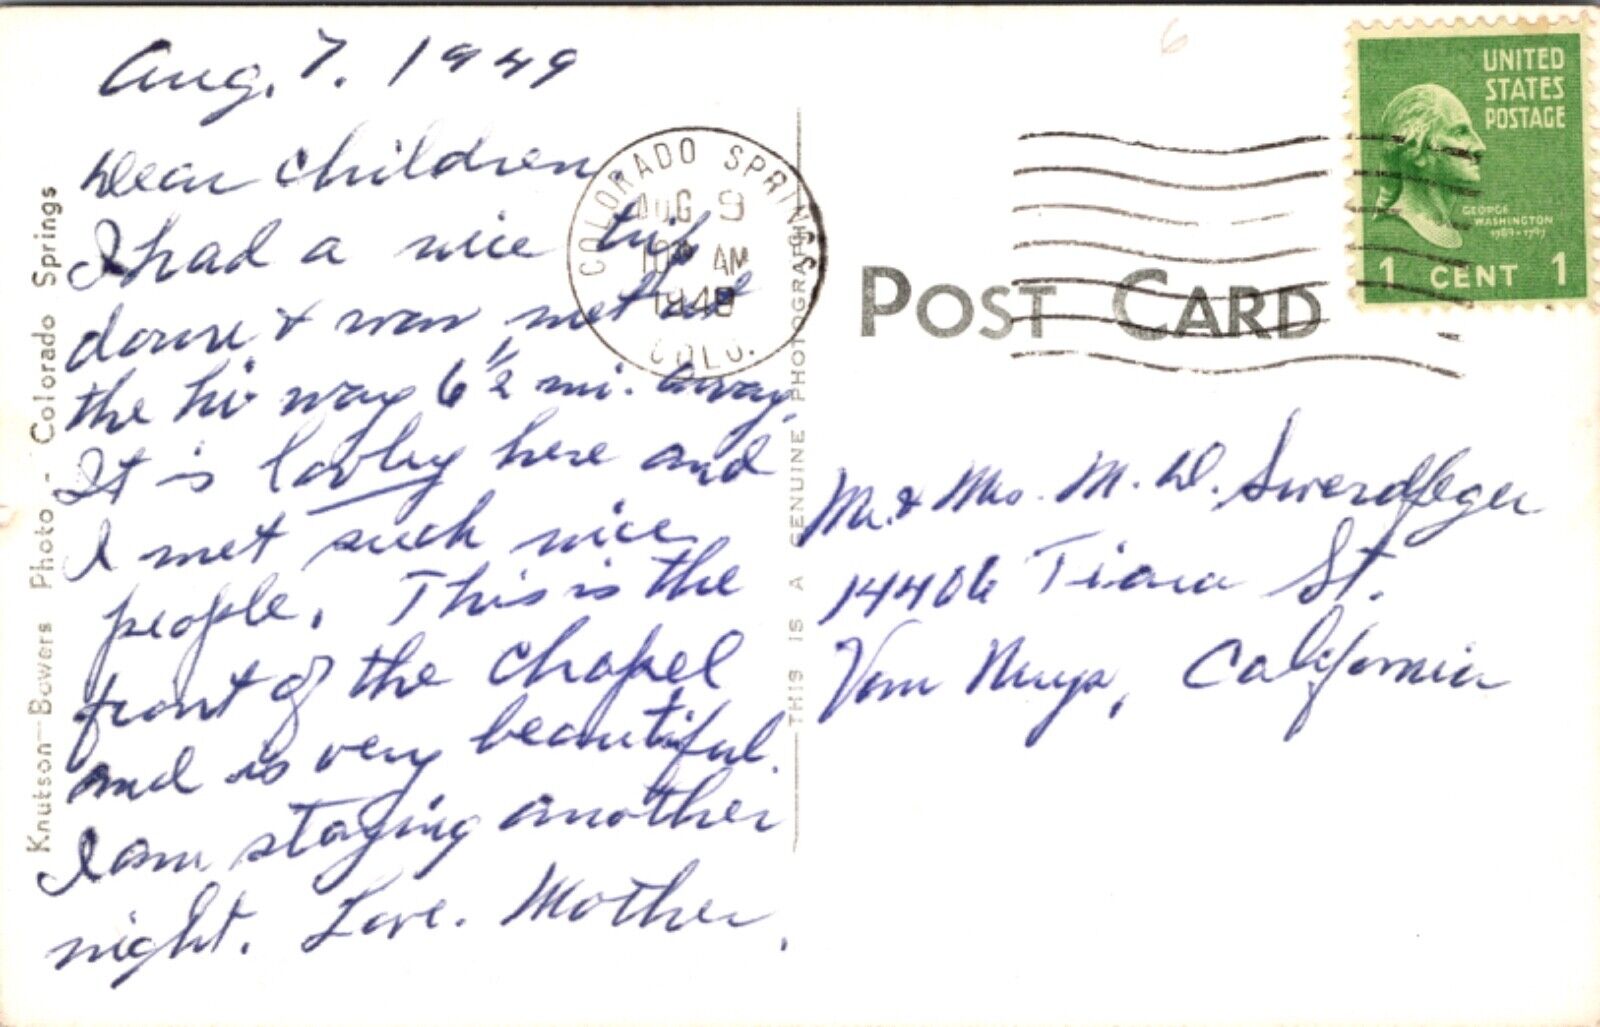 Aug. 7. 1949
Dear Children
I had a nice trip
down & was met at
the hi way 6 1/2 mi. away.
It is lovley here and
I met such nice
people. This is the
front of the chapel
and is very beautiful.
I am staying another
night. Love. Mother.
Knutson-Bowers Photo - Colorado Springs
COLORADO SPRINGS
AUG 9
10 AM
1949
COLO.
THIS IS A GENUINE PHOTOGRAPH
POST CARD
UNITED
STATES
POSTAGE
GEORGE
WASHINGTON
1789-1797
1 CENT 1
Mr. & Mrs. M. W. Swerdfeger
14406 Tiara St.
Van Nuys, California
6